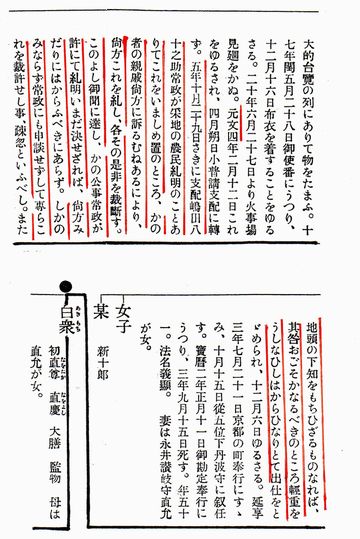 大的台覽の列にありて物をたまふ。十
七年閏五月二十八日御使番にうつり、
十二月十六日布衣を着することをゆる
さる。二十年六月二十七日より火事場
見廻をかぬ。元文四年二月十二日これ
をゆるされ、四月朔日小普請支配に轉
ず。五年十月二十九日さきに支配嶋田八
十之助常政が采地の農民糺明のことあ
りてこれをいましめ置のところ、かの
者の親戚尙方に訴ふるむねあるにより、
尙方これを糺し、各その是非を裁斷す。
このよし御聞に達し、かの公事常政が
許にて糺明いまだ決せざれば、尙方み
だりにはからふべきにあらず。しかの
みならず常政にも申談ぜずして專らこ
れを裁許せし事、疎忽といふべし。また
地頭の下知をもちひざるものなれば、
其咎おごそかなるべきのところ輕重を
うしなひしはからひなりとて出仕をと
どめられ、十二月六日ゆるさる。延享
三年七月二十一日京都の町奉行にすゝ
み、十月十五日從五位下丹波守に敍任
す。寶曆二年正月十一日御勘定奉行に
うつり、三年九月十五日死す。年五十
一。法名義顯。 妻は永井讃岐守直允
が女。
女子
某 新十郎
直衆
初直尊 直慶 大膳 監物 母は
直允が女。